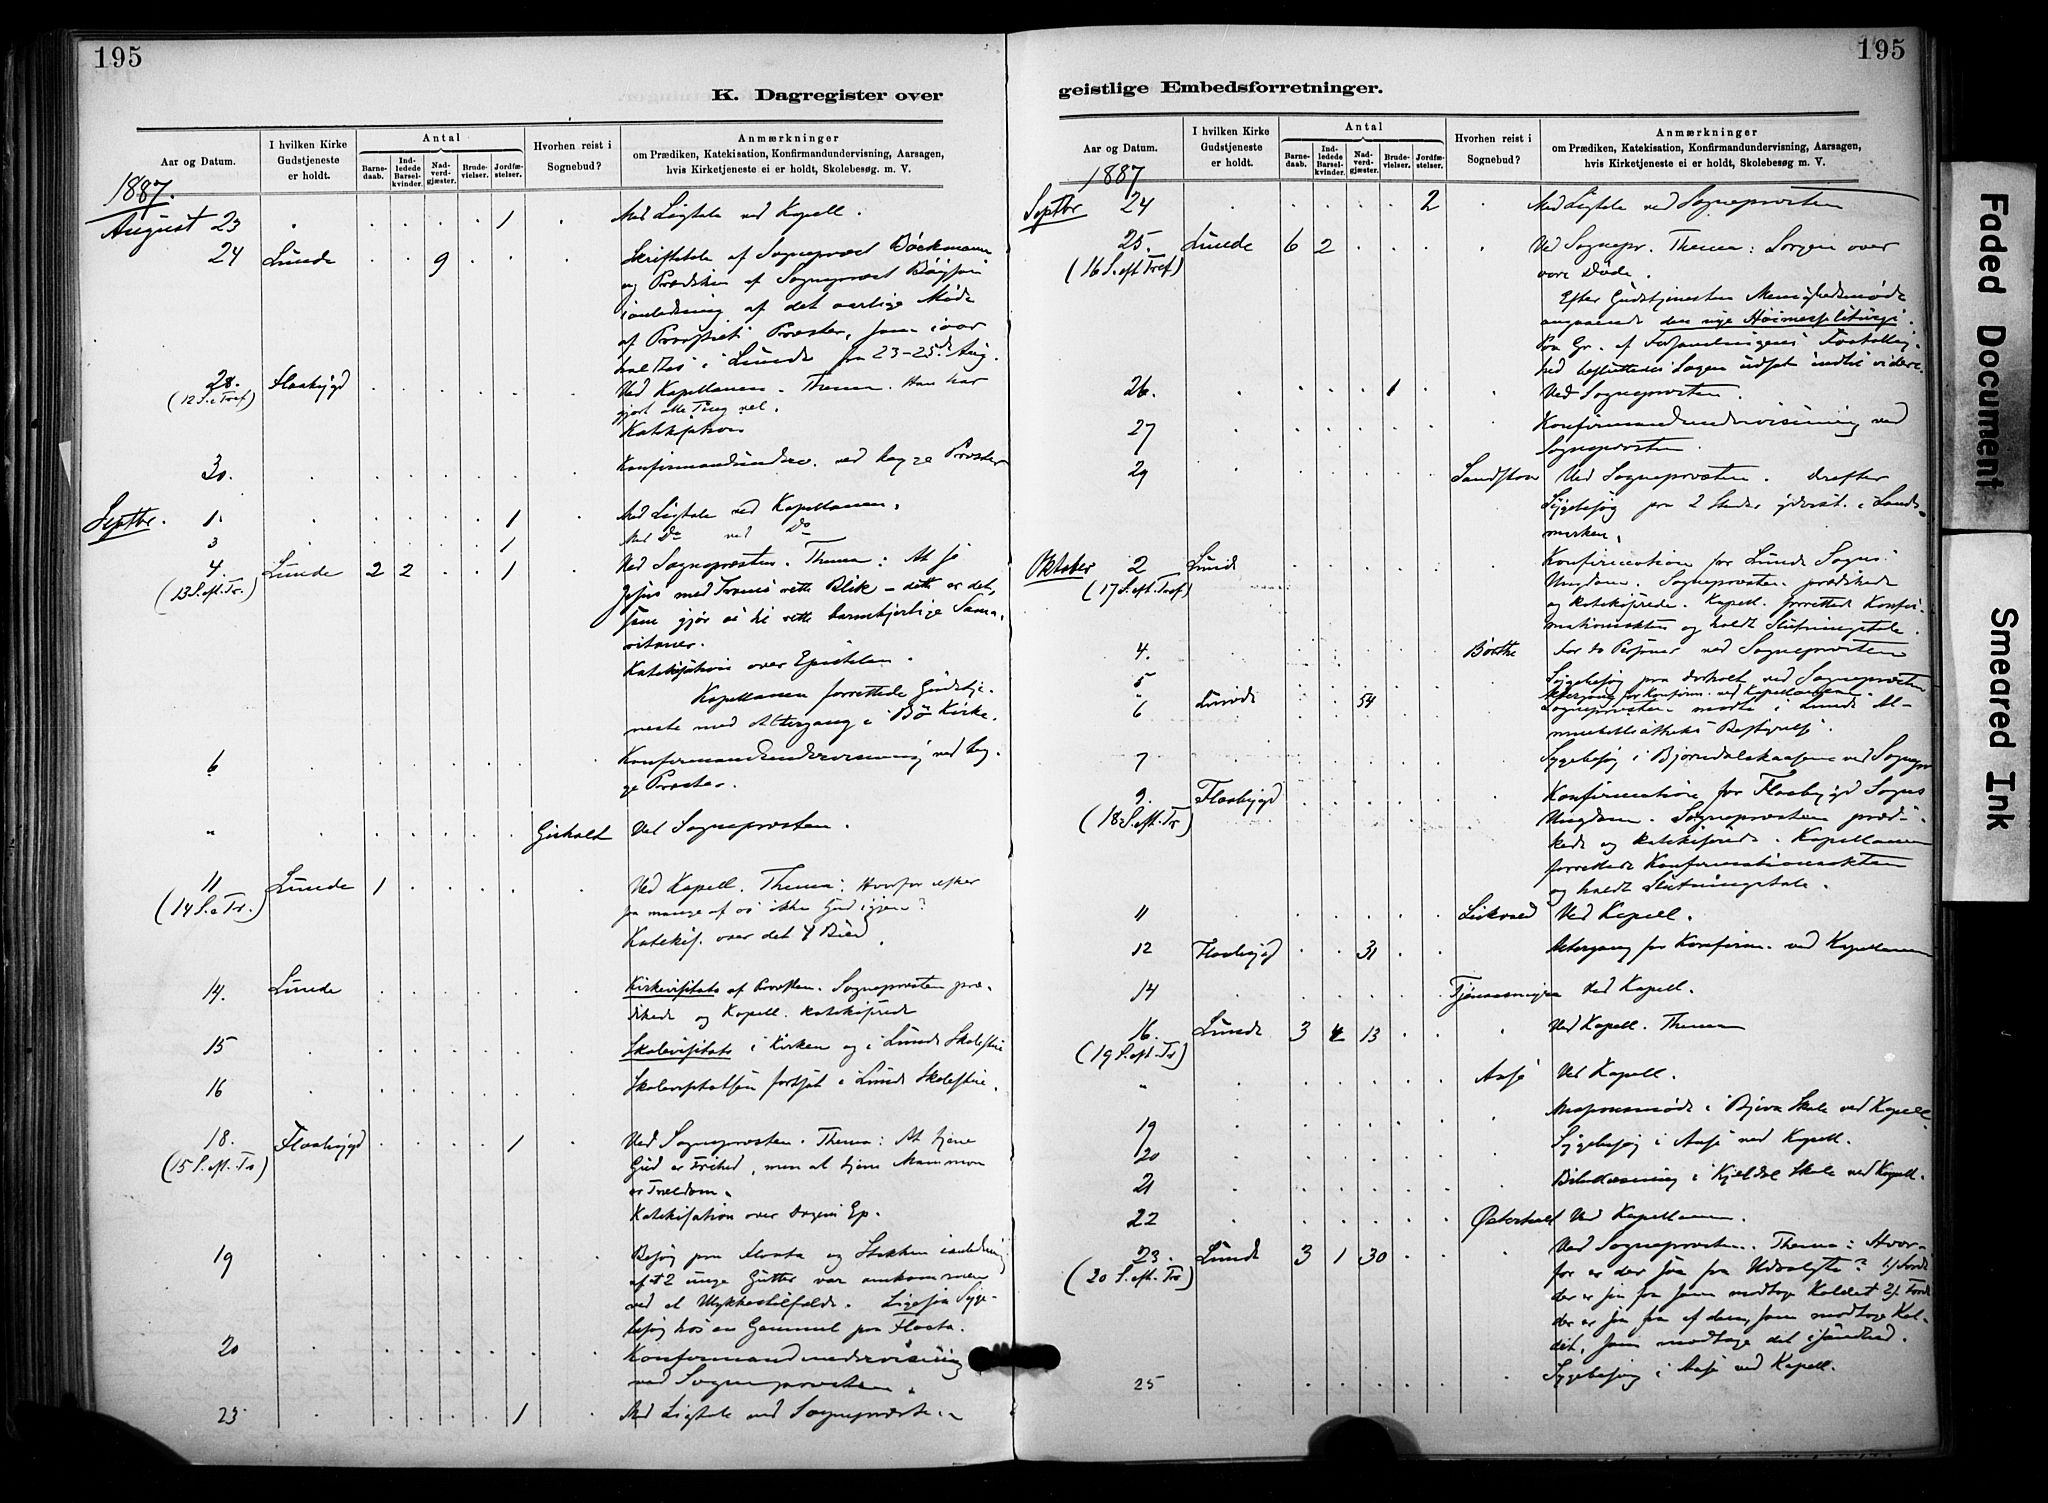 195
K. Dagregister over
Aar og Datum.
I hvilken Kirke Gudstjeneste er holdt.
Antal
Barnedaab.
Indledede Barselkvinder.
Nadverdgjæster.
Brudevielser.
Jordfæstelser.
Hvorhen reist i Sognebud?
Anmærkninger
om Prædiken, Katekisation, Konfirmandundervisning, Aarsagen,
hvis Kirketjeneste ei er holdt, Skolebesøg. m. V.
1887.
August 23 . . . . . 1 . Med Ligtale ved Kapell.
24 Lunde . . 9 . . . Skriftetale af Sogneprest Bøckmann
og Prædiken af Sogneprest
i anledning af det aarlige Møde
af Provstiets Prester, som iaar
holdtes i Lunde fra 23-25de Aug.
28. Flaabygd . . . . . . Ved Kapellanen. Thema. Han har
(12 S. e Tref) gjort alle Ting vel.
Katekisation
30. . . . . . . . Konfirmandunderv. ved begge Prester
Septbr. 1. . . . . . 1 . Med Ligtale ved Kapellanen.
3 . . . . . 1 Med Do ved Do
4. Lunde 2 2 . . 1 . Ved Sognepresten. Thema: At se
(13 S. eft. Tr.) Jesus med Troens rette Blik – dette er det,
som gjør os til rette barmhjertige Sama-
ritaner.
Katekisation over Epistelen.
Kapellanen forrettede Gudstje-
neste med Altergang i Bø Kirke.
6 . . . . . . . Konfirmandundervisning ved beg-
ge Prester.
" . . . . . . Ved Sognepresten.
11 Lunde 1 . . . . . Ved Kapell. Thema: Hvorfor
(14 S. e Tr.) saa mange af os ikke Gud igjen?
Katekis. over det 4 Bud.
14. Lunde . . . . . . Kirkevisitats af Provsten. Sognepresten præ-
dikede og Kapell. katekiserede
15 . . . . . . . Skolevisitats i Kirken og i Lunde Skolestue
16 . . . . . . . Skolevisitatsen fortsat i Lunde Skolestue.
18. Flaabygd . . . . 1 . Ved Sognepresten. Thema: At tjene
(15 S. eft. Tr) Gud er Frihed, men at tjene Mammon
er Trældom.
Katekisation over dagens Ep.
19 . . . . . . . Besøg paa Flaata og Stokken i anledning
af at 2 unge Gutter var omkommen
ved et Ulykkestilfælde. Ligesaa Syge-
besøg hos en Gammel paa Flaata.
20 . . . . . . . Konfirmandundervisning
ved Sognepresten.
23 . . . . . 1 . Med Ligtale ved Sognepresten
195
geistlige Embedsforretninger.
Aar og Datum.
I hvilken Kirke Gudstjeneste er holdt.
Antal
Barnedaab.
Indledede Barselkvinder.
Nadverdgjæster.
Brudevielser.
Jordfæstelser.
Hvorhen reist i Sognebud?
Anmærkninger
om Prædiken, Katekisation, Konfirmandundervisning, Aarsagen,
hvis Kirketjeneste ei er holdt, Skolebesøg. m. V.
1887
Septbr 24 . . . . . 2 . Med Ligtale ved Sognepresten
25. Lunde 6 2 . . . . Ved Sognepr. Thema: Sorgen over
(16 S. eft Tref) vore Døde.
Efter Gudstjenesten Menighedsmøde
angaaende den nye Høimesseliturgi.
Paa Gr. af Forsamlingens Faatallig-
hed besluttedes Sagen udsat indtil videre.
26. . . . . 1 . . Ved Sognepresten.
27 . . . . . . . Konfirmandundervisning ved
Sognepresten.
29 . Ved Sognepresten. derefter
Sygebesøg paa 2 Steder yderst i Lands-
marken.
Oktober 2 Lunde . . . . . . Konfirmation for Lunde Sogns
(17 S. eft. Tref) Ungdom. Sognepresten prædikede
og katekiserede. Kapell. forrettede Konfir-
mationsakten og holdt Slutningstale.
4. . . . . . . Børthe for to Personer ved Sognepresten
5 . . . . . . . Sygebesøg paa ved Sognepresten
" Altergang for Konfirm. ved Kapellanen.
6 Lunde . . 54 . . . Sognepresten møtte i Lunde Al-
muebibliotheks Bestyrelse.
7 . . . . . . . Sygebesøg i ved Sognepr
9. Flaabygd . . . . . . Konfirmation for Flaabygd Sogns
(18 S. eft. Tr) Ungdom. Sognepresten præd-
kede og katekiserede. Kapellanen
forrettede Konfirmationsakten
og holdt Slutningstale.
11 . . . . . . Ved Kapell.
12 Flaabygd . . 31 . . . Altergang for Konfirm. ved Kapellanen
14 . . . . . . Ved Kapell.
16. Lunde 3 4 13 . . " Ved Kapell. Thema
(19 S. eft. Tr)
" . . . . . . Aase Ved Kapell.
19 . . . . . . . Missionsmøde i Skole ved Kapell
20 . . . . . . . Sygebesøg i Aase ved Kapell.
21 . . . . . . . Bibellæsning i Kjeldal Skole ved Kapell.
22 . . . . . . Østerholt Ved Kapellanen.
23. Lunde 3 1 30 . . . Ved Sognepresten. Thema: Hvor-
(20 S. eft. Tr) for er der saa faa Udvalgte? 1) Fordi
der er saa faa som modtage Kaldet 2). Fordi
der er saa faa af dem, som modtage Kal-
det, som modtage det i Sandhed.
25 . . . . . . . Sygebesøg i Aase ved Kapell.
Faded Document
Smeared Ink